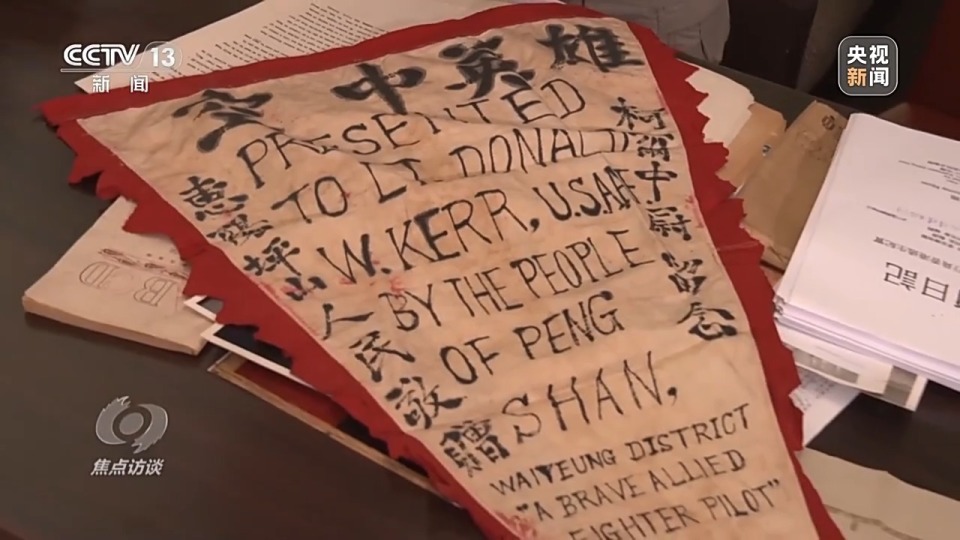 CCTV 13
新闻
央视
新闻
空中英雄
PRESENTED
TO LT DONALD
W. KERR, U.S.A.F.
BY THE PEOPLE
OF PENG
SHAN,
WAIYEUNG DISTRICT
"A BRAVE ALLIED
FIGHTER PILOT"
柯尔中尉留念
惠阳坪山人民敬赠
日記
焦点访谈